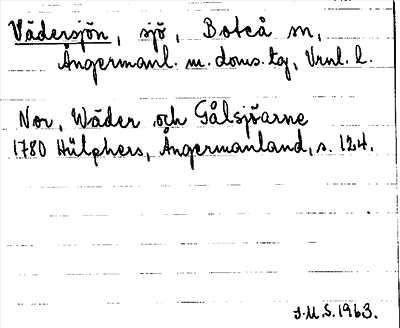 Vädersjön, sjö, Boteå sn,
Ångermanl. m. doms. tg, Vrnl. l.
Nor, Wäder och Gålsjöarne
1780 Hülphers, Ångermanland, s. 124.
J.M.S. 1963.